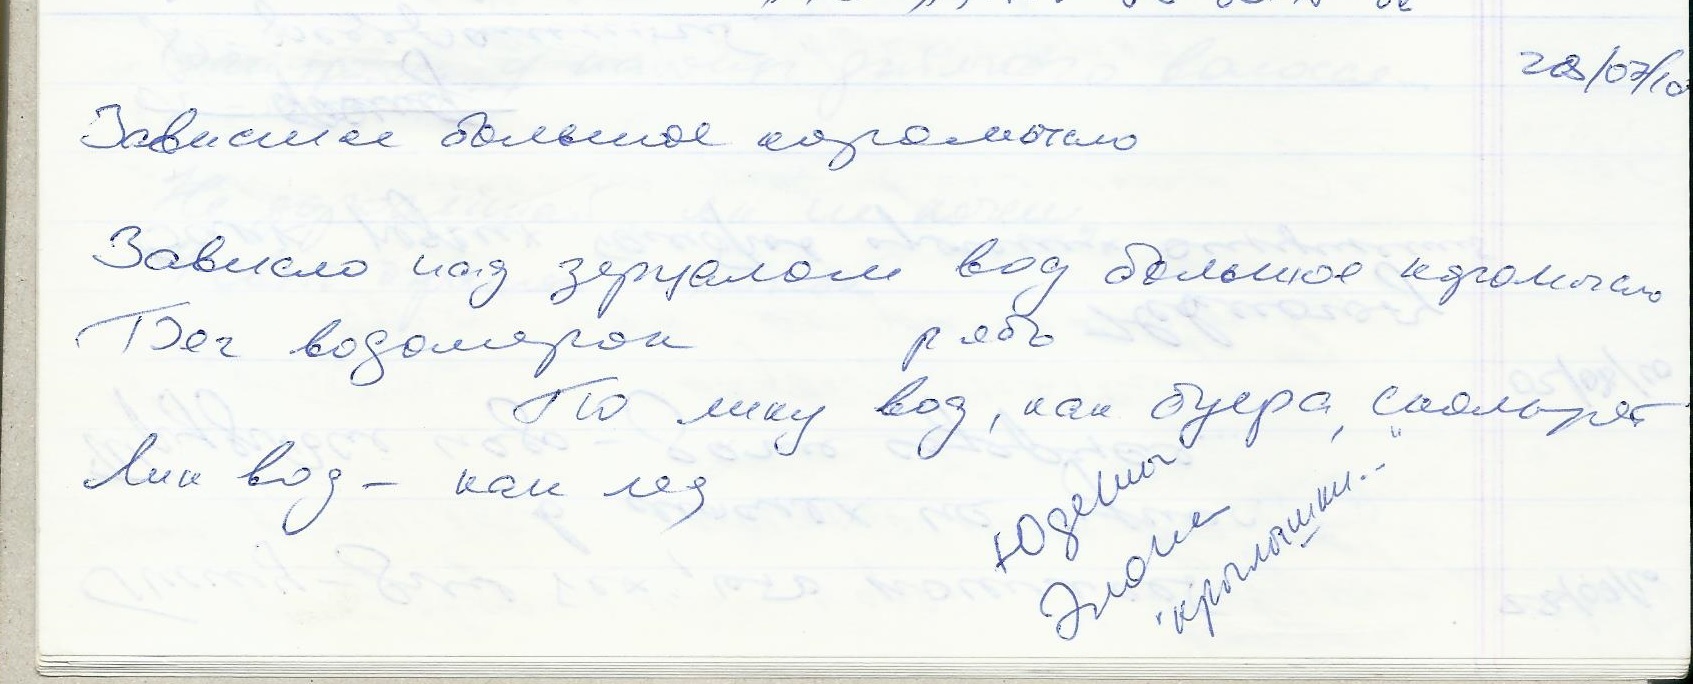 28/07/10
Зависшее большое коромысло
Зависло над зерцалом вод большое коромысло
Бег водомерок рябь
По лику вод, как буера, скользят
Лик вод – как лед
"крылышки..."